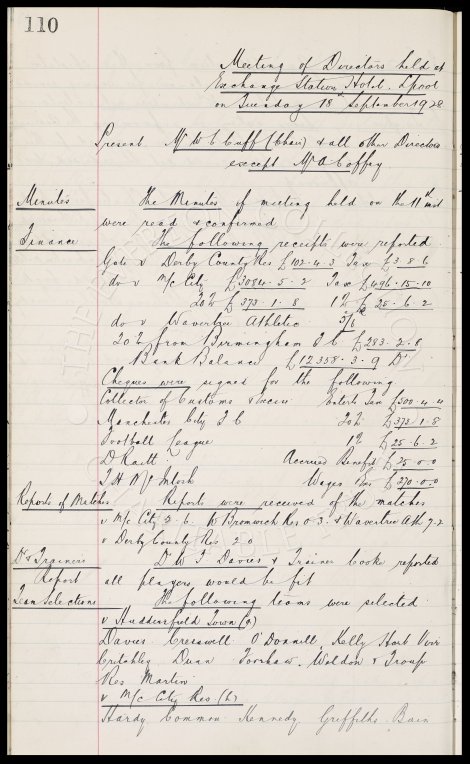 110
Meeting of Directors held at
Exchange Station Hotel. Lpool
on Tuesday 18th September 1928
Present Mr W C Cuff (Chair) & all other Directors
except Mr A Coffey
Minutes The Minutes of meeting held on the 11th inst
were read & confirmed
Finance The following receipts were reported
Gate v Derby County Res £102.4.3 Tax £3.8.6
do v M/c City £3084.5.2 Tax £496.15.10
20% £373.1.8 1% £25.6.2
do v Wavertree Athletic
20% from Birmingham F C £283.2.8
Bank Balance £12358.3.9 Dr
Cheques were signed for the following
Collector of Customs & Excise Enterts Tax £500.4.4
Manchester City F C 20% £373.1.8
Football League 1% £25.6.2
D Raitt Accrued Benefit £25.0.0
T H McIntosh Wages &c £270.0.0
Reports of Matches Reports were received of the matches
v M/c City 2.6. W Bromwich Res 0.3. & Wavertree Ath 7.2
v Derby County Res 2.0
Dr & Trainers Dr W F Davies & Trainer Cooke reported
Report all players would be fit
Team Selections The following teams were selected
v Huddersfield Town (a)
Davies Cresswell O'Donnell. Kelly Hart Virr
Critchley Dunn Weldon & Troup
Res Martin
v M/c City Res (h)
Hardy Common Kennedy Griffiths Bain